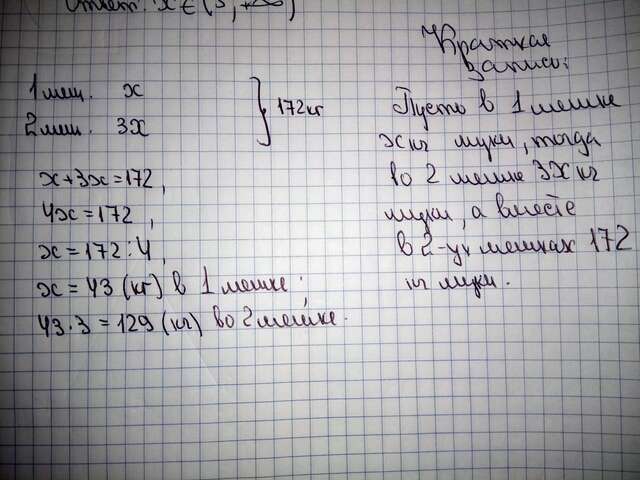 Ответ: x ∈ (3; +∞)
Краткая
запись:
1 меш. x
2 меш. 3x
} 172 кг
x+3x=172,
4x=172,
x=172:4,
x=43 (кг) в 1 мешке;
43·3=129 (кг) во 2 мешке.
Пусть в 1 мешке
x кг муки, тогда
во 2 мешке 3x кг
муки, а вместе
в 2-ух мешках 172
кг муки.